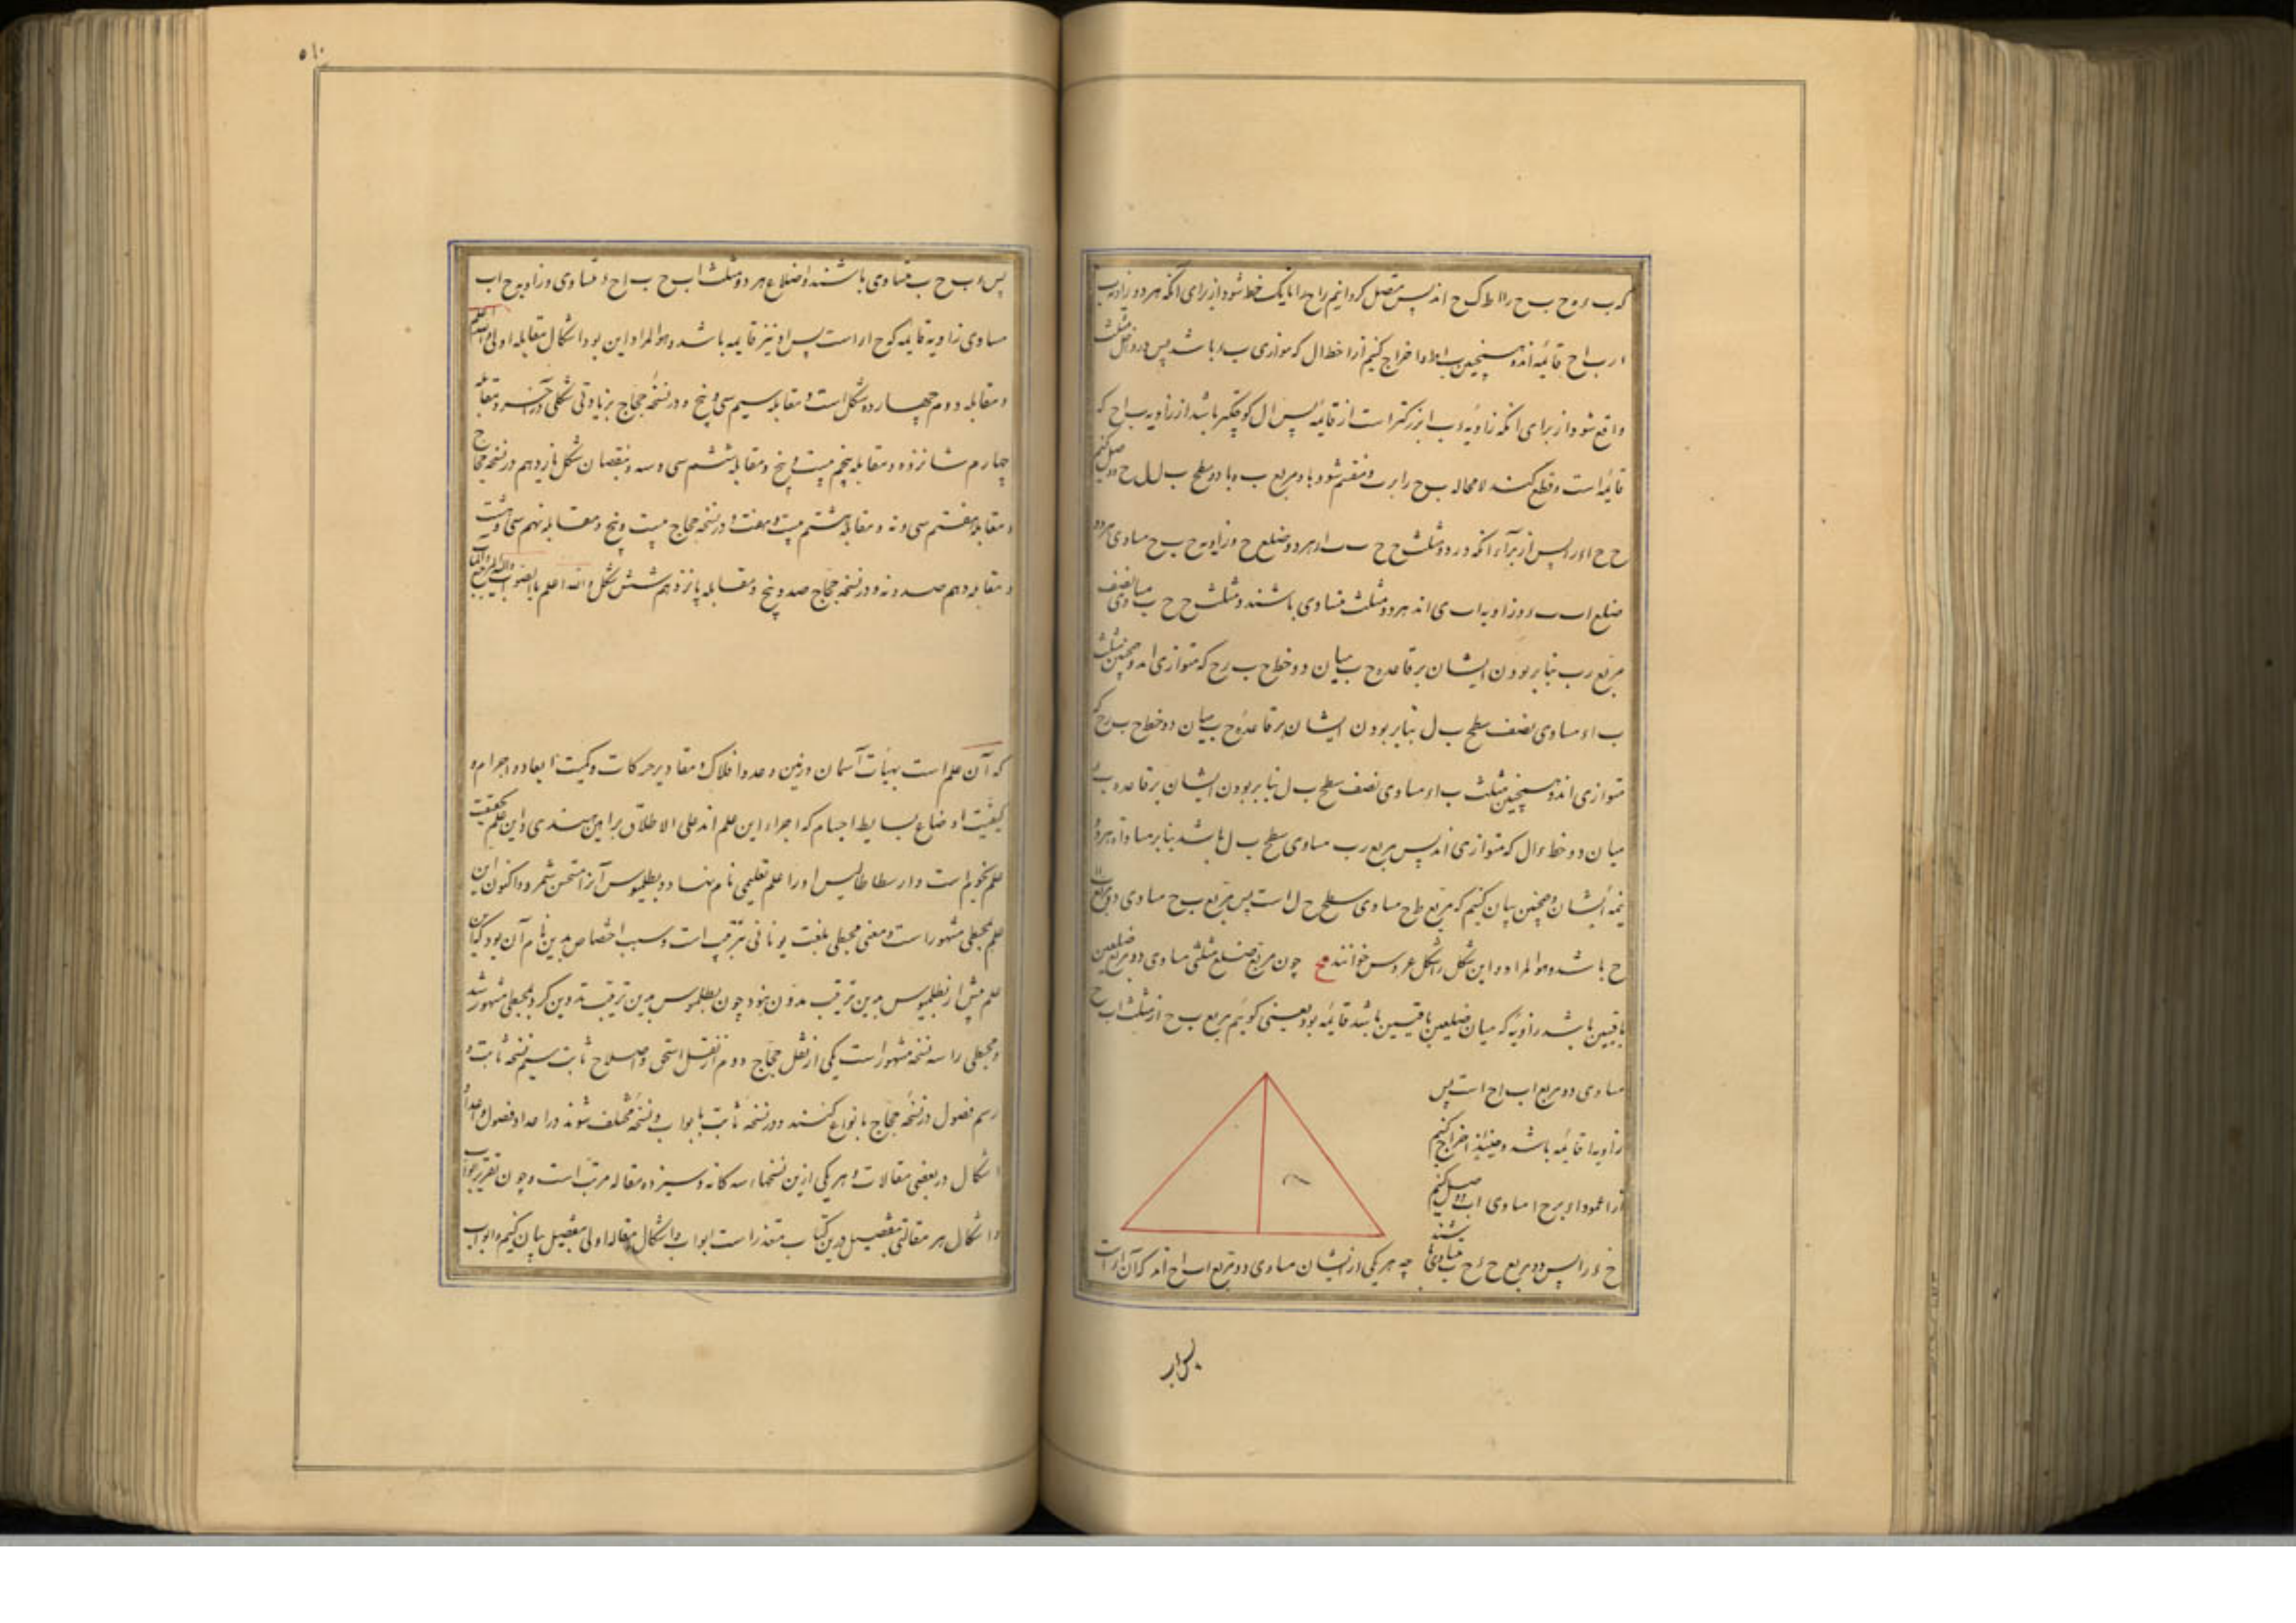 که ب ء و ح ب ح را ا ط ک ح اند پس متصل گردانیم را ح ء ا تا یک خط شود از برای آنکه هر دو زاویه ب
ا ر ب ا ح قائمه‌اند و همچنین ب ا ط و اخراج کنیم از ا خط ا ل که موازی ب ء باشد پس در داخل مثلث
واقع شود از برای انکه زاویه ء ب ا بزرگتر است از قائمه پس ا ل کوچکتر باشد از زاویه ب ا ح که
قائمه است و قطع کند لا محاله ب ح را بر ت و منقسم شود با و مربع ب ه با دو سطح ب ل ل ح و وصل کنیم
ح ح ا ء را پس از برای آنکه در دو مثلث ح ح ب ب ا ء هر دو ضلع ح و زاویه ح ب ح مساوی هر دو
ضلع ا ب ب ء و زاویه ا ب ی اند هر دو مثلث متساوی باشند و مثلث ح ح ب مساوی نصف
مربع ر ب بنابر بودن ایشان بر قاعده ح ب میان دو خط ح ب ر ح که متوازی اند و همچنین مثلث
ب ا ء مساوی نصف سطح ب ل بنابر بودن ایشان بر قاعده ح ب میان دو خط ح ب ر ح که
متوازی اند و همچنین مثلث ب ا ء مساوی نصف سطح ب ل بنابر بودن ایشان بر قاعده ب ء
میان دو خط ء ا ل که متوازی اند پس مربع ر ب مساوی سطح ب ل باشد بنابر مساواة هر دو
نیمه ایشان و همچنین بیان کنیم که مربع ط ح مساوی سطح ح ل است پس مربع ب ح مساوی دو مربع ا ا
ح باشد و هو المراد و این شکل را شکل عروس خوانند مح چون مربع ضلع مثلثی مساوی دو مربع ضلعین
باقیین باشد زاویه که میان ضلعین باقیین باشد قائمه بود یعنی گوئیم مربع ب ح از مثلث ا ب ح
مساوی دو مربع ا ب ا ح است پس
زاویه ا قائمه باشد و حینئذ اخراج کنیم
از ا عمود ا ء بر ح ا مساوی ا ب و وصل کنیم
ح ء را پس دو مربع ح ء ح ب متساوی باشند چه هر یکی از ایشان مساوی دو مربع ا ب ا ح اند که آن ا ء است
پس ا بر
۵۱۰
پس ء ب ح ب متساوی باشند و اضلاع هر دو مثلث ا ب ح ب ا ح ء متساوی و زاویه ح ا ب
مساوی زاویه قائمه که ح ا ر است پس او نیز قایمه باشد و هو المراد این بود اشکال مقابله اولی و الله اعلم
و مقابله دوم چهارده شکل است و مقابله سیم سی و پنج و در نسخه حجاج بزیادتی شکلی در آخر و مقابله
چهارم شانزده و مقابله پنجم بیست و پنج و مقابله ششم سی و سه و بنقصان شکل یازدهم در نسخه حجاج
و مقابله هفتم سی و نه و مقابله هشتم بیست و هفت و در نسخه حجاج بیست و پنج و مقابله نهم سی و هشت
و مقابله دهم صد و نه و در نسخه حجاج صد و پنج و مقابله پانزدهم شش شکل و الله اعلم بالصواب و الیه المرجع و المآب
که آن علم است بهیأت آسمان و زمین و عدد افلاک و مقادیر حرکات و کمیت ابعاد و اجرام و
کیفیت اوضاع بسایط اجسام که اجزاء این علم اند علی الاطلاق براهین هندسی و این علم بحقیقت
علم نجوم است و ارسطاطالیس او را علم تعلیمی نام نهاد و بطلمیوس آنرا مستحسن شمرد و اکنون این
علم بمجسطی مشهور است و معنی مجسطی بلغت یونانی ترتیب است و سبب اختصاص بدین نام آن بود که این
علم پیش از بطلمیوس بدین ترتیب مدون نبود چون بطلمیوس بدین ترتیب تدوین کرد بمجسطی مشهور شد
و مجسطی را سه نسخه مشهور است یکی از نقل حجاج دوم از نقل اسحق و اصلاح ثابت سیم نسخه ثابت و
رسم فصول در نسخه حجاج بانواع کنند و در نسخه ثابت بابواب و نسخه مختلف شوند در اعداد فصول و اعداد
اشکال در بعضی مقالات و هر یکی از این نسخهاء سه گانه و سیزده مقاله مرتب است و چون تقریر ابواب
و اشکال هر مقالتی بتفصیل درین کتاب متعذر است ابواب و اشکال مقاله اولی بتفصیل بیان کنیم و ابواب